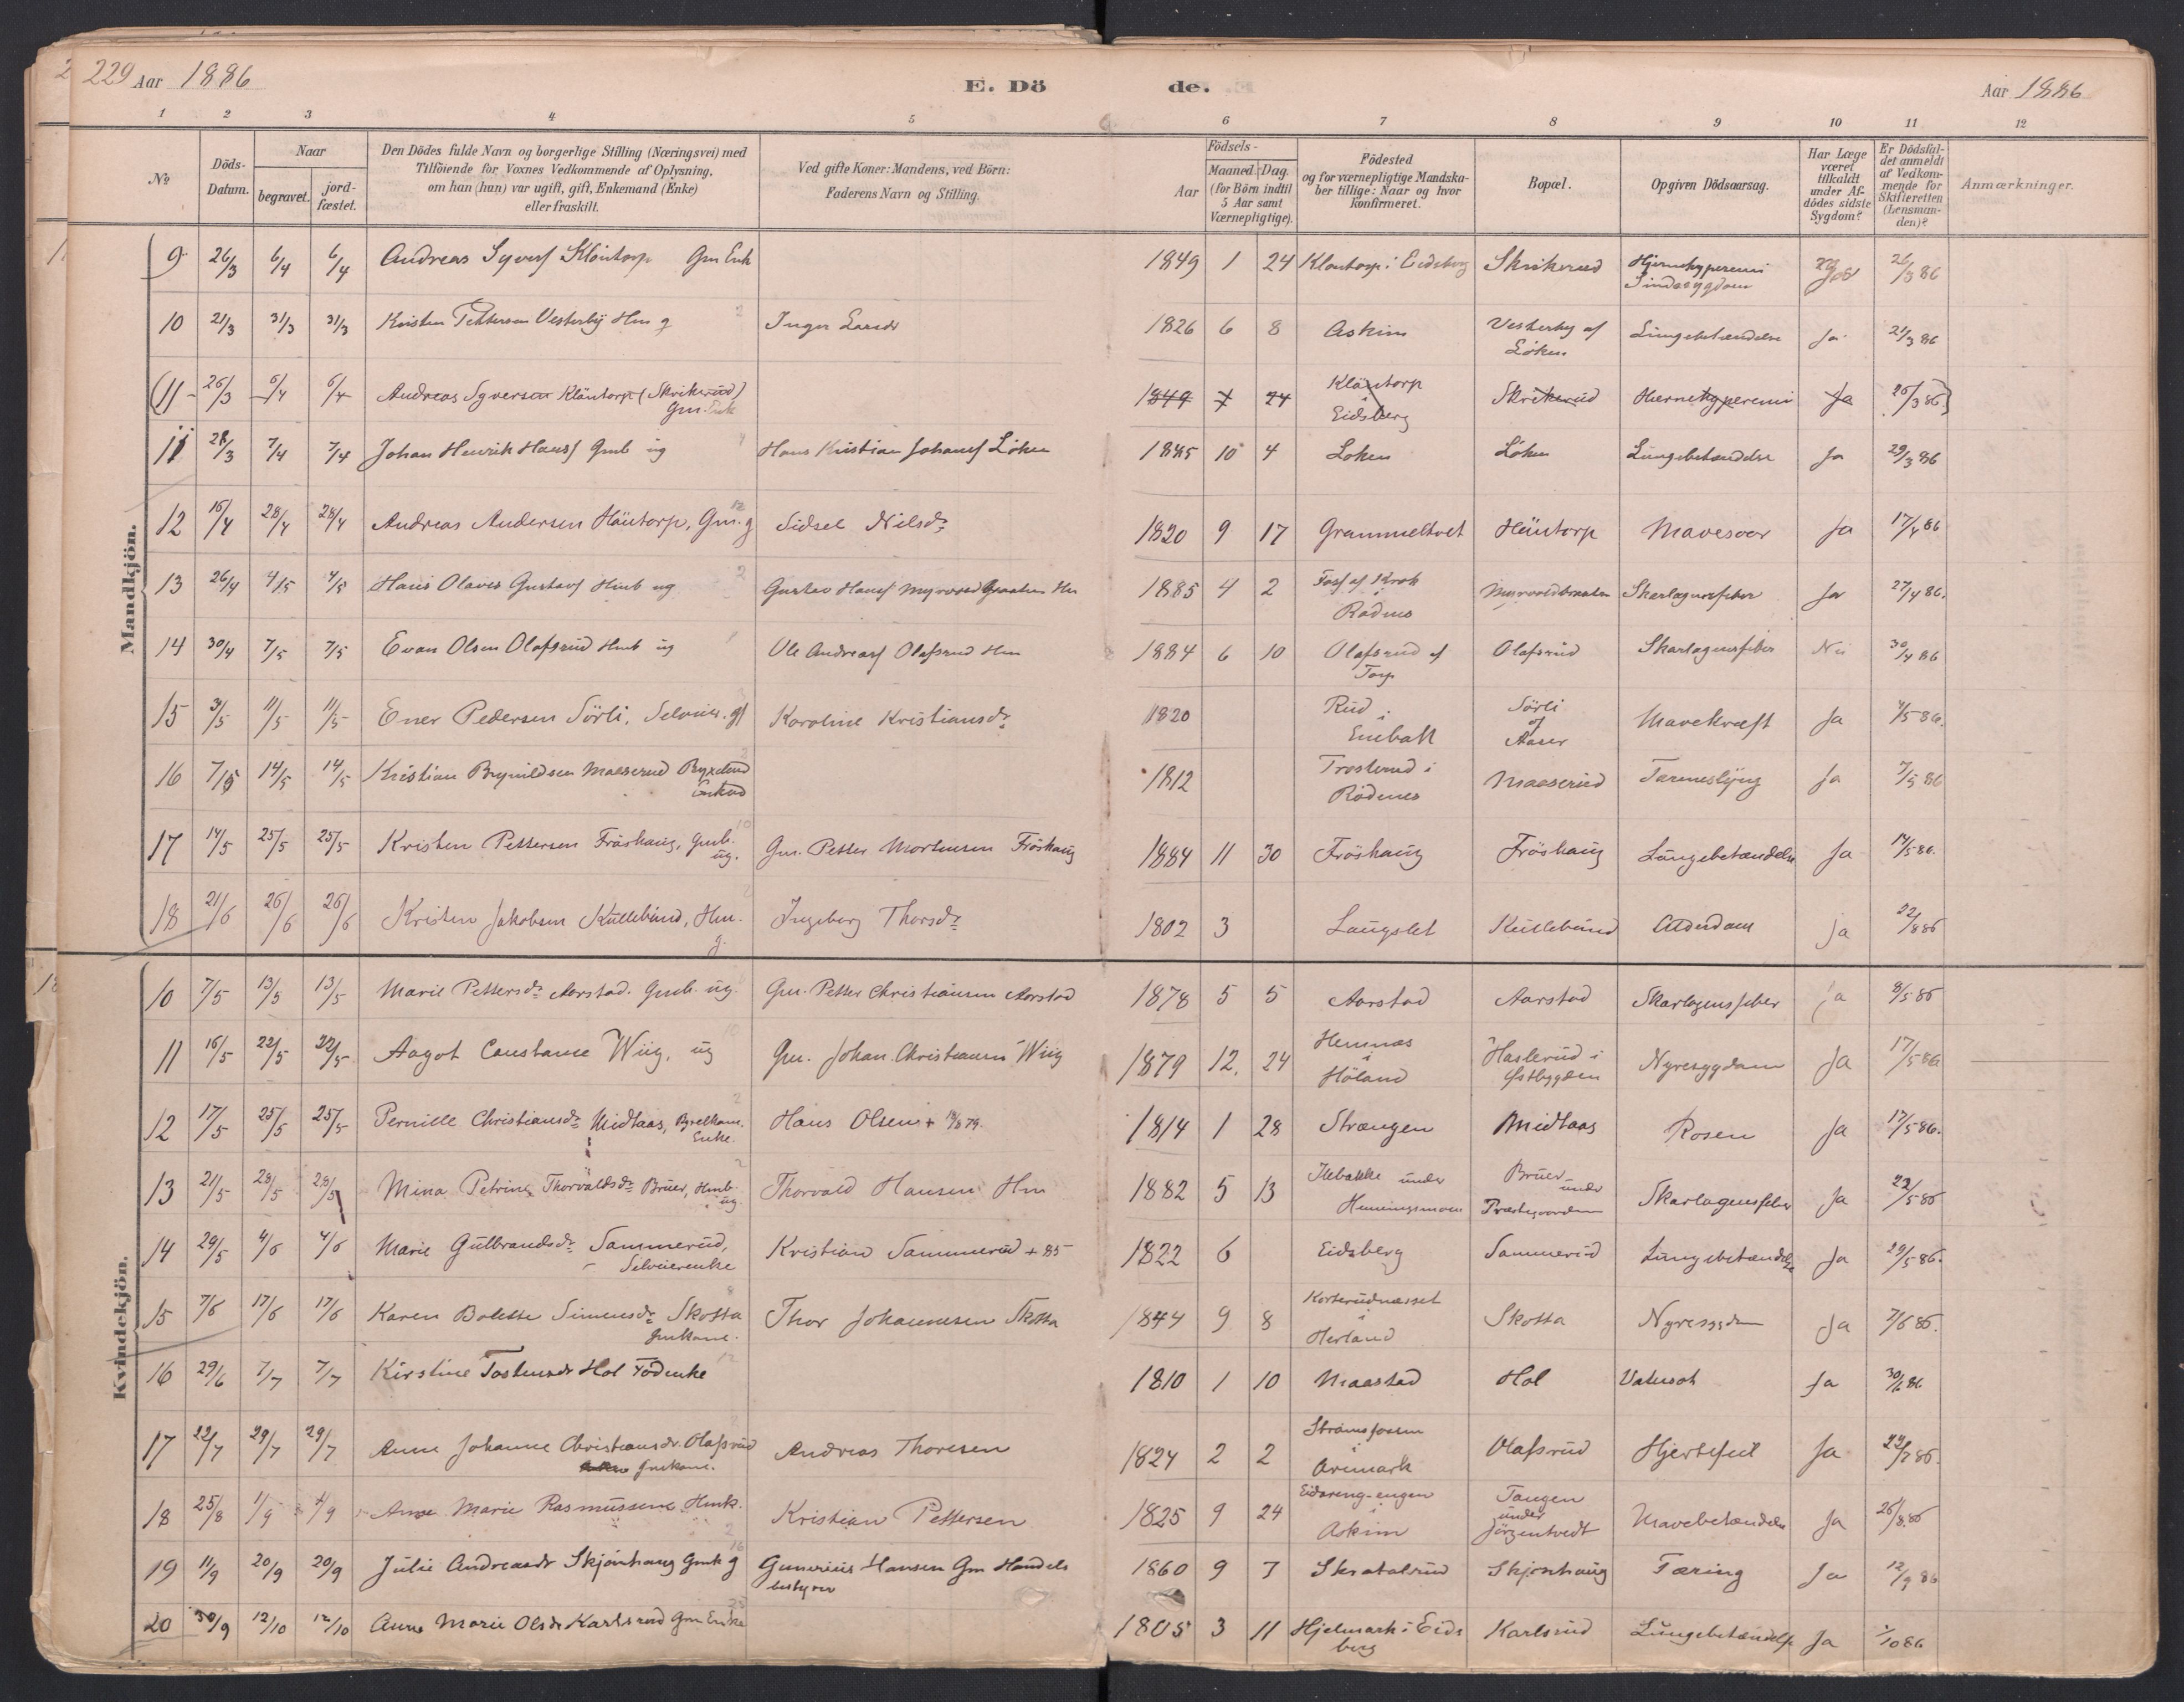 229 Aar 1886 E. Dö de. Aar 1886
1 2 3 4 5 6 7 8 9 10 11 12
No
Döds-Datum.
Naar
begravet.
jordfæstet.
Den Dödes fulde Navn og borgerlige Stilling (Næringsvei) med
Tilföiende for Voxnes Vedkommende af Oplysning,
om han (hun) var ugift, gift, Enkemand (Enke)
eller fraskilt.
Ved gifte Koner: Mandens, ved Börn:
Faderens Navn og Stilling.
Födsels-
Aar
Maaned. Dag.
(for Börn indtil
5 Aar samt
Værnepligtige).
Födested
og for værnepligtige Mandskaber tillige: Naar og hvor
konfirmeret.
Bopæl.
Opgiven Dödsaarsag.
Har Læge
været
tilkaldt
under Afdödes sidste
Sygdom?
Er Dödsfaldet anmeldt
af Vedkommende for
Skifteretten
(Lensmanden)?
Anmærkninger.
Mandkjön.
9 26/3 6/4 6/4 Andreas Syvers Kläntorp Gm Enk 1849 1 24 Klöntorp i Eidsberg Skrikerud Hjernehyperemi Sindssygdom Ja 26/3 86
10 21/3 31/3 31/3 Kristen Pettersen Vesterby Hm g 2 Inger Larsdr 1826 6 8 Askim Vesterby af Löken Lungebetændelse Ja 21/3 86
(11 26/3 6/4 6/4 Andreas Syversen Kläntorp (Skrikerud) Gm. Enk 1849 1 24 Kläntorp i Eidsberg Skrikerud Hiernehyperemi Ja 26/3 86)
11 28/3 7/4 7/4 Johan Henrik Hans Gmb ug Hans Kristian Johans Löken 1885 10 4 Loken Löken Lungebetændelse Ja 29/3 86
12 16/4 28/4 28/4 Andreas Andersen Häntorp, Gm. g 12 Sidsel Nilsdr 1820 9 17 Grammeltvet Häntorp Mavesaar Ja 17/4 86
13 26/4 4/5 4/5 Hans Olaves Gustavs Hmb ug 2 Gustav Hans Myrvoldbraaten Hm 1885 4 2 Foss af Krok i Rödnes Myrvoldbraaten Skarlagensfeber Ja 27/4 86.
14 30/4 7/5 7/5 Evan Olsen Olafsrud Hmb ug Ole Andreas Olafsrud Hm 1884 6 10 Olafsrud af Torp Olafsrud Skarlagensfeber Nei 30/4 86
15 3/5 11/5 11/5 Ener Pedersen Sörli, Selveier. gf Karoline Kristiansdr 1820 Rud i Enebak Sörli af Aaser Mavekræft Ja 4/5 86.
16 7/5 14/5 14/5 Kristian Brynildsen Maaserud 1812 Trosterud i Rödenes Maaserud Tarmeslyng Ja 7/5 86
17 14/5 25/5 25/5 Kristen Pettersen Fröshaug, Gmb. ug. 10 Gm. Petter Mortensen Fröshaug 1884 11 30 Fröshaug Fröshaug Lungebetændelse Ja 14/5 86.
18 21/6 26/6 26/6 Kristen Jakobsen Kullebund, Hm. g. 2 Ingeborg Thorsdr 1802 3 Langslet Kullebund Alderdom ja 22/6 86
Kvindekjön.
10 7/5 13/5 13/5 Marie Pettersdr Aarstad. Gmb. ug. Gm. Petter Christiansen Aarstad 1878 5 5 Aarstad Aarstad Skarlagensfeber ja 8/5 86
11 16/5 22/5 22/5 Aagot Constanse Wiig, ug Gm. Johan Christiansen Wiig 1879 12. 24 Hemnæs i Höland Haslerud i Östbygden Nyresygdom Ja 17/5 86
12 17/5 25/5 25/5 Pernille Christiansdr Midtaas, Enke. 2 Hans Olsen + 79. 1814 1 28 Strængen Midtaas Rosen Ja 17/5 86.
13 21/5 28/5 28/5 Mina Petrine Thorvaldsdr Bruer, Hmb. ug 2 Thorvald Hansen Hm 1882 5 13 Ilebakke under Henningsmoen Bruer under Præstegaarden Skarlagensfeber Ja 22/5 86
14 29/5 4/6 4/6 Marie Gulbrandsdr Sammerud, Selveierenke Kristian Sammerud + 85 1822 6 Eidsberg Sammerud Lungebetændelse Ja 29/5 86.
15 7/6 17/6 17/6 Karen Bolette Simensdr Skotta Gmkone. 8 Thor Johannesen Skotta 1844 9 8 Korterudnæsset i Herland Skotta Nyresygdom Ja 7/6 86.
16 29/6 7/7 7/7 Kirstine Tostensdr Hol Födenke 12 1810 1 10 Maastad Hol Vatersot Ja 30/6 86
17 22/7 29/7 29/7 Anne Johanne Christensdr. Olafsrud Gmkone. Andreas Thoresen 1824 2 2 Strömsfossen i Aremark Olafsrud Hjertefeil Ja 22/7 86.
18 25/8 1/9 1/9 Anne Marie Rasmussen Hmk. 2 Kristian Pettersen 1825 9 24 Eidareng-engen i Askim Tangen under Jörgentvedt Mavebetændelse Ja 26/8 86
19 11/9 20/9 20/9 Julie Andreasdr Skjönhaug Gmk g 16 Gunerius Hansen Gm Handels bestyrer 1860 9 7 Skratalrud Skjönhaug Tæring Ja 12/9 86
20 30/9 12/10 12/10 Anne Marie Olsdr Karlsrud Gm Enke 1805 3 11 Hjelmark i Eidsberg Karlsrud Lungebetændelse Ja 1/10 86